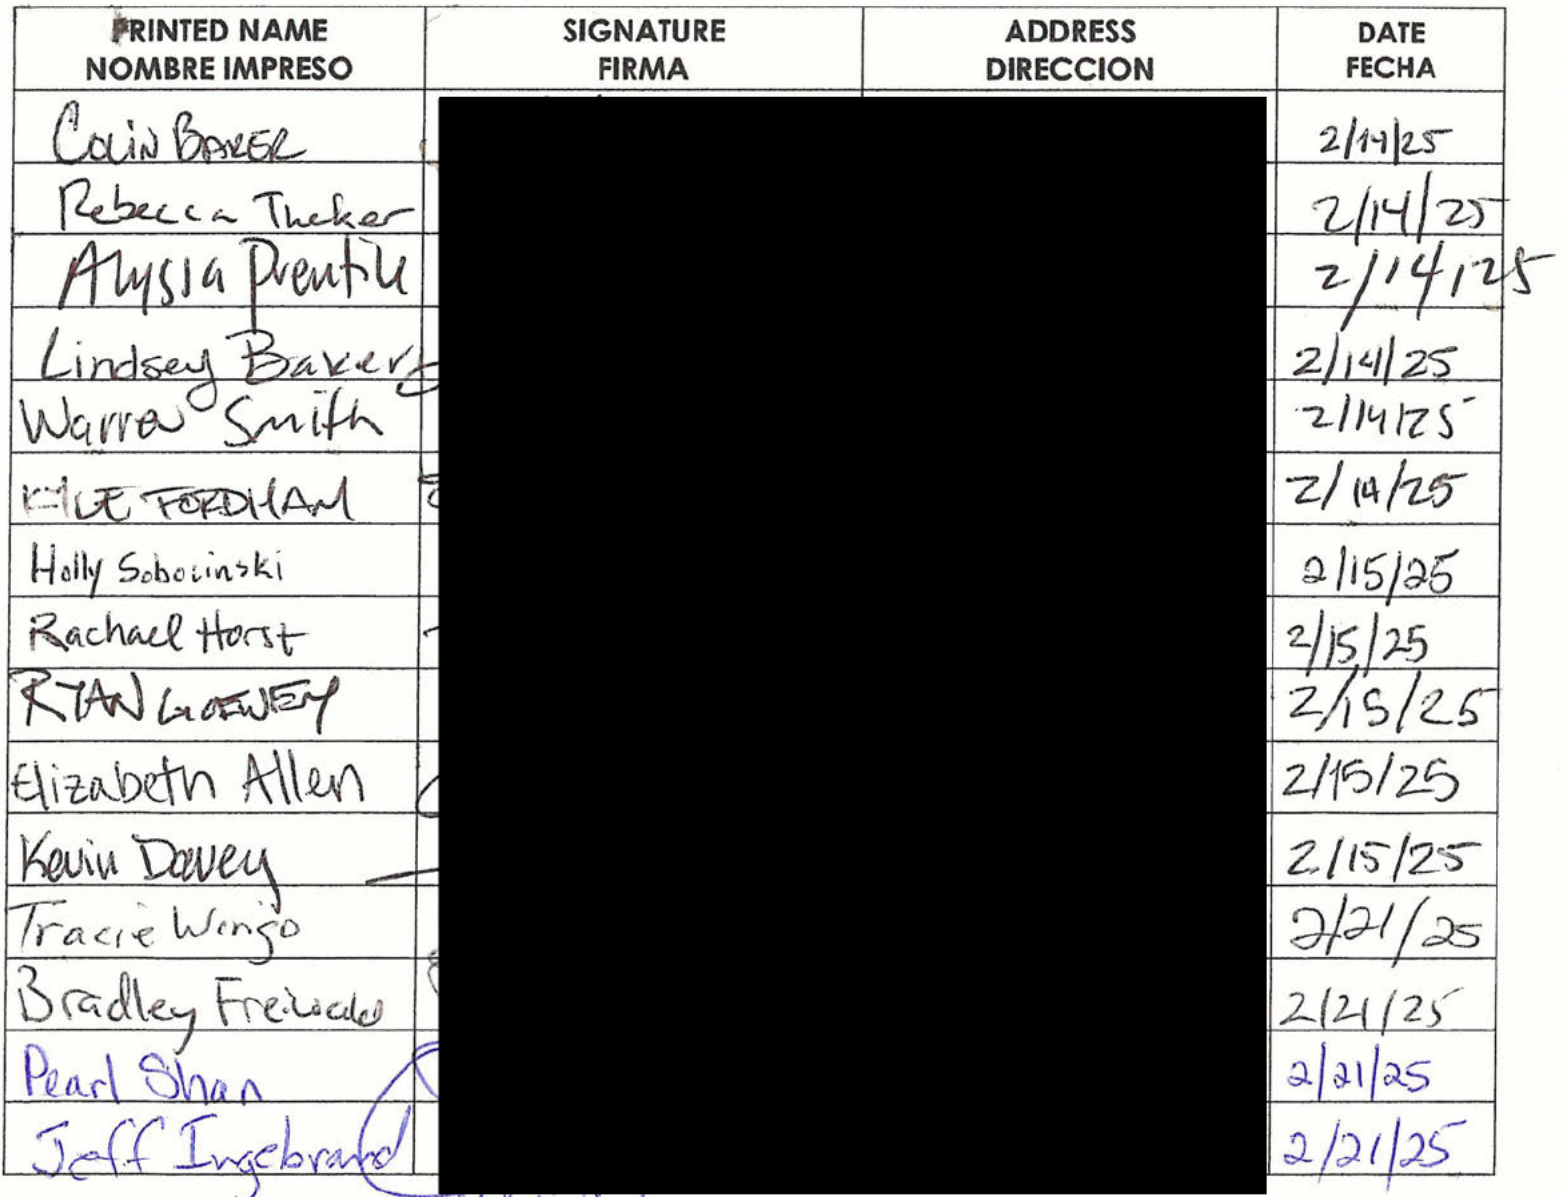 PRINTED NAME SIGNATURE ADDRESS DATE
NOMBRE IMPRESO FIRMA DIRECCION FECHA
COLIN BAKER 2/14/25
Rebecca 2/14/25
Alysia 2/14/25
Lindsey Baker 2/14/25
Warren Smith 2/14/25
FORDHAM 2/14/25
Holly Sobocinski 2/15/25
Rachael Horst 2/15/25
RYAN GOEWEY 2/15/25
Elizabeth Allen 2/15/25
Kevin Davey 2/15/25
Tracie Wingo 2/21/25
Bradley Freiwald 2/21/25
Pearl Shan 2/21/25
Jeff Ingebrand 2/21/25